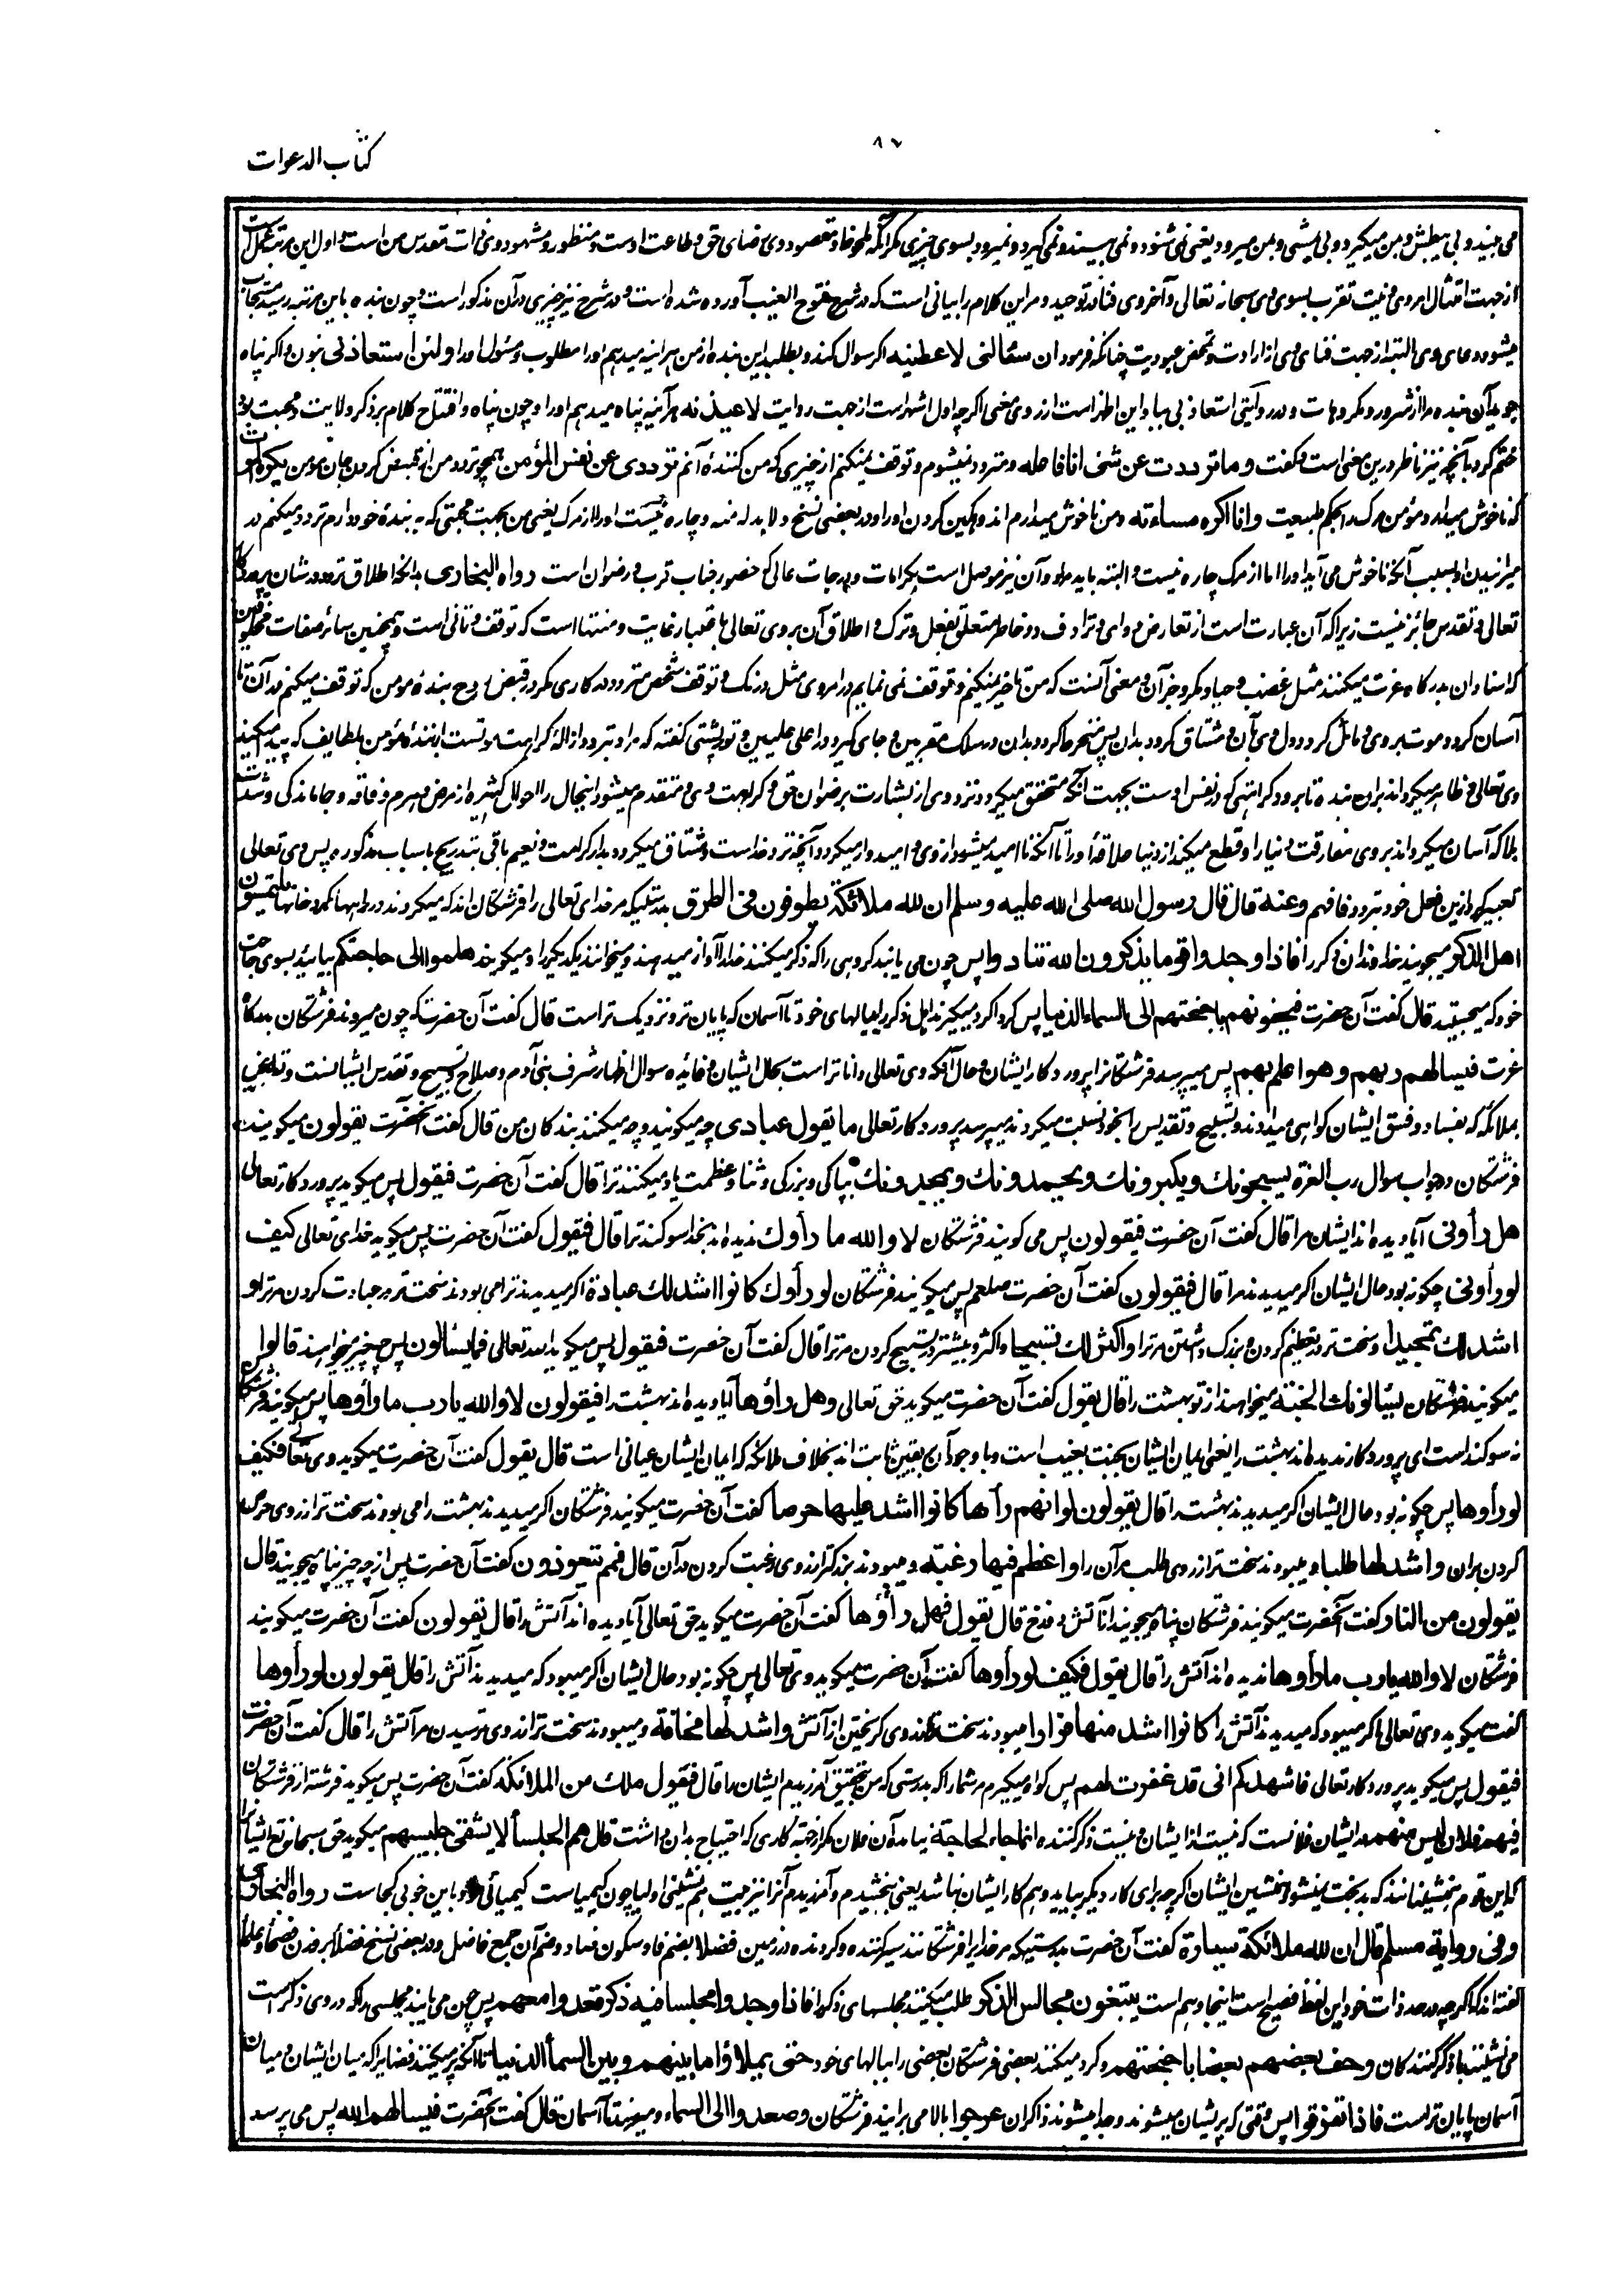 كتاب الدعوات
می بیند و بی یبطش و بمن میگیرد و بی یمشی و بمن میرود یعنی نمی شنود و نمی بیند و نمی گیرد و نمیرود بسوی چیزی مگر آنکه ملحوظ و مقصود وی رضای حق و طاعت اوست و منظور و مشهود وی ذات مقدس من است و اول این مرتبه
از جهت امتثال امر وی و نیت تقرب بسوی وی سبحانه تعالی و آخر وی فنا در توحید و مر این کلام را بیانی است که در شرح فتوح الغیب آورده شده است و در شرح نیز چیزی در آن مذکور است و چون بنده باین مرتبه رسید مستجاب
میشود دعای وی البته از جهت فنای وی از ارادت و تمحض عبودیت چنانکه فرمود ان سئالنی لاعطینه اگر سوال کند و بطلبد این بنده از من هر آینه میدهم او را مطلوب و مسئول او را و لئن استعاذنی بنون و اگر پناه
جوید آن بنده مرا از شرور و مکروهات و در روایتی استعاذ بی ببا و این اظهر است از روی معنی اگرچه اول اشهر است از جهت روایت لاعیذنه هر آینه پناه میدهم او را و چون پناه و افتتاح کلام بر ذکر ولایت و محبت بود
ختم کرد بآنچه نیز ناظر درین معنی است و گفت و ما ترددت عن شئ انا فاعله و متردد نمیشوم و توقف نمیکنم از چیزی که من کننده آنم ترددی عن نفس المؤمن همچو تردد من از قبض کردن جان مومن یکره الموت
که ناخوش میدارد مؤمن مرگ را بحکم طبیعت و انا اکره مساءته و من ناخوش میدارم اندوهگین کردن او را و در بعضی نسخ و لا بد له منه و چاره نیست او را از مرگ یعنی من بجهت محبتی که به بنده خود دارم تردد میکنم در
میرانیدن او بسبب آنکه ناخوش می آید او را اما از مرگ چاره نیست و البته باید مرد و آن نیز موصل است بکرامات و درجات عالی که حضور جناب قرب و رضوان است رواه البخاری بدانکه اطلاق تردد در شان پروردگار
تعالی و تقدس جائز نیست زیرا که آن عبارت است از تعارض دو رای و ترادف دو خاطر متعلق بفعل و ترک و اطلاق آن بر وی تعالی باعتبار غایت و منتها است که توقف و تانی است و همچنین سائر صفات مخلوقین
که اسناد آن بدرگاه عزت میکنند مثل غضب و حیا و مکر و جز آن و معنی آنست که من تاخیر نمیکنم و توقف نمی نمایم در امری مثل درنگ و توقف شخص متردد در کاری مگر در قبض روح بنده مومن که توقف میکنم در آن تا
آسان گردد موت بر وی و مائل گردد دل وی بآن و مشتاق گردد بدان پس منخرط گردد بدان در سلک مقربین و جای گیرد در اعلی علیین و تورپشتی گفته که مراد بتردد ازاله کراهت موتست از بنده مؤمن بلطایف که پیدا میکند
وی تعالی و ظاهر میگرداند بر آن بنده تا برود کراهتی که در نفس اوست بجهت آنچه متحقق میگردد نزد وی از بشارت برضوان حق و کراهت وی متقدم میشود اینحال را احوال کثیره از مرض و هرم و فاقه و جاماندگی و شدت
بلا که آسان میگرداند بر وی مفارقت دنیا را و قطع میکند از دنیا علاقه او را تا آنکه ناامید میشود از وی و امیدوار میگردد آنچه نزد خداست و مشتاق میگردد بدار کرامت و نعیم باقی بتدریج باسباب مذکوره پس وی تعالی
تعبیر کرد ازین فعل خود بتردد فافهم و عنه قال قال رسول الله صلی الله علیه و سلم ان لله ملائکة یطوفون فی الطرق بدرستیکه مر خدای تعالی را فرشتگان اند که میگردند در راهها گرد خانها یلتمسون
اهل الذکر میجویند خداوندان ذکر را فاذا وجدوا قوما یذکرون الله تنادوا پس چون می یابند گروهی را که ذکر میکنند خدا را آواز میدهند و میخوانند یکدیگر را و میگویند هلموا الی حاجتکم بیائید بسوی حاجت
خود که میجستید قال گفت آن حضرت فیحفونهم باجنحتهم الی السماء الدنیا پس گرداگرد میگیرند اهل ذکر را ببالهای خود تا آسمان که پایان تر و نزدیک تر است قال گفت آن حضرت که چون میروند فرشتگان بدرگاه
عزت فیسالهم ربهم و هو اعلم بهم پس میپرسد فرشتگان را پروردگار ایشان و حال آنکه وی تعالی داناتر است بحال ایشان و فائده سوال اظهار شرف بنی آدم و صلاح و تسبیح و تقدس ایشانست و تعریض
بملائکه که بفساد و فسق ایشان گواهی میدادند و تسبیح و تقدیس را بخود نسبت میکردند میپرسد پروردگار تعالی ما یقول عبادی چه میگویند و چه میکنند بندگان من قال گفت آنحضرت یقولون میگویند
فرشتگان در جواب سوال رب العزة یسبحونک و یکبرونک و یحمدونک و یمجدونک بپاکی و بزرگی و ثنا و عظمت یاد میکنند ترا قال گفت آن حضرت فیقول پس میگوید پروردگار تعالی
هل رأونی آیا دیده اند ایشان مرا قال گفت آن حضرت فیقولون پس می گویند فرشتگان لا و الله ما رأوك ندیده اند بخدا سوگند ترا قال فیقول گفت آن حضرت پس میگوید خدای تعالی کیف
لو رأونی چگونه بود حال ایشان اگر میدیدند مرا قال فیقولون گفت آن حضرت صلعم پس میگویند فرشتگان لو رأوك کانوا اشد لك عبادة اگر میدیدند ترا می بودند سخت تر در عبادت کردن مر ترا و
اشد لك تمجیدا و سخت تر در تعظیم کردن و بزرگ داشتن مر ترا و اکثر لك تسبیحا و اکثر و بیشتر در تسبیح کردن مر ترا قال گفت آن حضرت فیقول پس میگوید الله تعالی فما یسألون پس چه چیز میخواهند قالوا
میگویند فرشتگان یسالونك الجنة میخواهند از تو بهشت را قال یقول گفت آن حضرت میگوید حق تعالی و هل رأوها آیا دیده اند بهشت را فیقولون لا و الله یا رب ما رأوها پس میگویند فرشتگان
نه سوگند است ای پروردگار ندیده اند بهشت را یعنی ایمان ایشان بجنت بغیب است و با وجود آن بیقین ثابت اند بخلاف ملائکه که ایمان ایشان عیانی است قال یقول گفت آن حضرت میگوید وی تعالی فکیف
لو رأوها پس چگونه بود حال ایشان اگر میدیدند بهشت را قال یقولون لو انهم رأوها کانوا اشد علیها حرصا گفت آن حضرت میگویند فرشتگان اگر میدیدند بهشت را می بودند سخت تر از روی حرص
کردن بران و اشد لها طلبا و میبودند سخت تر از روی طلب مر آن را و اعظم فیها رغبة و میبودند بزرگتر از روی رغبت کردن در آن قال فمم یتعوذون گفت آن حضرت پس از چه چیز پناه میجویند قال
یقولون من النار گفت آنحضرت میگویند فرشتگان پناه میجویند از آتش دوزخ قال یقول فهل رأوها گفت آن حضرت میگوید حق تعالی آیا دیده اند آتش را قال یقولون گفت آن حضرت میگویند
فرشتگان لا و الله یا رب ما رأوها ندیده اند آتش را قال یقول فکیف لو رأوها گفت آن حضرت میگوید وی تعالی پس چگونه بود حال ایشان اگر میبود که میدیدند آتش را قال یقولون لو رأوها
گفت میگوید وی تعالی اگر میبود که میدیدند آتش را کانوا اشد منها فرارا میبودند سخت تر از روی گریختن از آتش و اشد لها مخافة و میبودند سخت تر از روی ترسیدن مر آتش را قال گفت آن حضرت
فیقول پس میگوید پروردگار تعالی فاشهدکم انی قد غفرت لهم پس گواه میگیرم مر شما را که بدرستی که من بتحقیق آمرزیدم ایشان را قال فیقول ملك من الملائکة گفت آن حضرت پس میگوید فرشته از فرشتگان
فیهم فلان لیس منهم در ایشان فلانست که نیست از ایشان و نیست ذکر کننده انما جاء لحاجة نیامد آن فلان مگر از جهت کاری که احتیاج بدان داشت قال هم الجلساء لا یشقی جلیسهم میگوید حق سبحانه و تعالی ایشان را
که این قوم همنشینانند که بدبخت نمیشود همنشین ایشان اگرچه برای کار دیگر بیاید و هم کار ایشان نباشد یعنی بخشیدم و آمرزیدم آنرا نیز همنشینی اولیا چون کیمیاست کیمیائی و باین خوبی کجاست رواه البخاری
و فی روایة مسلم قال ان لله ملائکة سیارة گفت آن حضرت بدرستیکه مر خدا را فرشتگانند سیر کننده و گردنده در زمین فضلا بضم فا و سکون ضاد و ضم آن جمع فاضل و در بعضی نسخ فضلاء بر وزن فصحاء و علماء
گفته اند که اگرچه در حد ذات خود این لفظ فصیح است اینجا وهم است یبتغون مجالس الذکر طلب میکنند مجلسهای ذکر را فاذا وجدوا مجلسا فیه ذکر قعدوا معهم پس چون می یابند مجلسی را که در وی ذکر است
می نشینند با ذکر کنندگان و حف بعضهم بعضا باجنحتهم و گرد میکنند بعضی فرشتگان بعضی را ببالهای خود حتی یملاؤا ما بینهم و بین السماء الدنیا تا آنکه پر میکنند فضا را که میان ایشان و میان
آسمان پایان تر است فاذا تفرقوا پس وقتی که پریشان میشوند و جدا میشوند ذاکران عرجوا بالا می برایند فرشتگان و صعدوا الی السماء و میروند تا آسمان قال گفت آنحضرت فیسالهم الله پس می پرسد